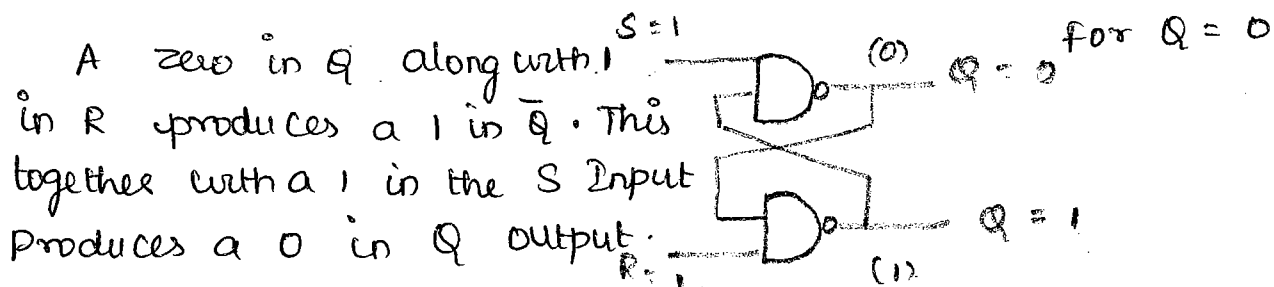 A zero in Q along with 1
in R produces a 1 in Q̄. This
together with a 1 in the S Input
Produces a 0 in Q output.
S = 1
(0)
Q = 0
for Q = 0
Q = 1
R = 1
(1)